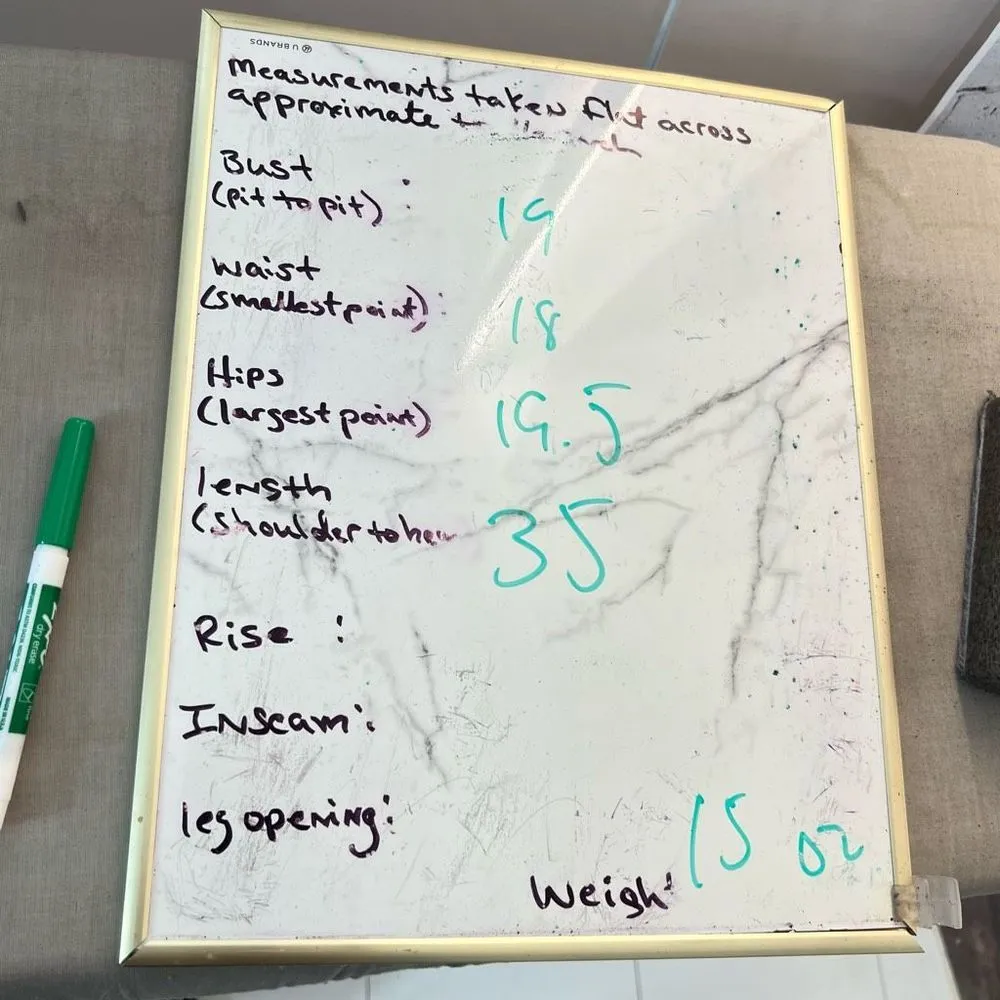 U BRANDS
Measurements taken flat across
approximate
Bust
(pit to pit) : 19
waist
(smallest point) : 18
Hips
(largest point) 19.5
length
(shoulder to 35
Rise :
Inseam :
leg opening :
15 oz
Weigh
dry erase